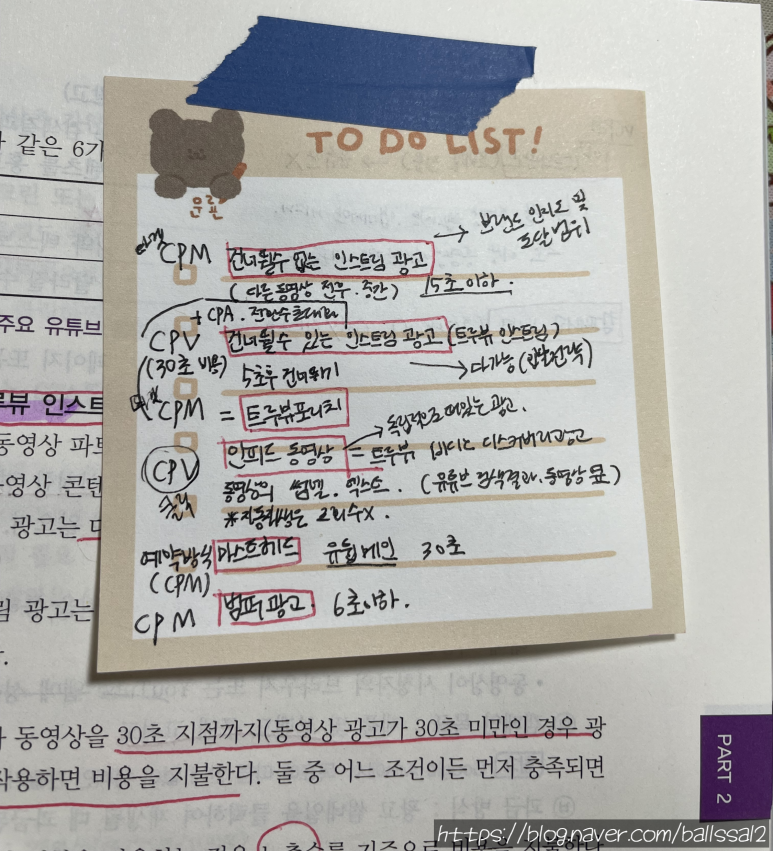 같은 6가
TO DO LIST!
유료
→ 브랜드 인지도 및
도달범위
CPM 건너뛸수 없는 인스트림 광고
(다른동영상 전후·중간) 15초이하.
+ CPA·전환수최대화
CPV 건너뛸수 있는 인스트림 광고 (트루뷰 인스트림)
(30초 비용) 5초후 건너뛰기 → 다가능
CPM = 트루뷰포리치
→ 독립적으로 떠있는광고.
CPV 인피드 동영상 = 트루뷰 비디오 디스커버리광고
클릭 동영상의 썸넬·텍스트. (유튜브 검색결과·동영상
※자동재생은 조회수X.
예약방식 마스트헤드 유튭메인 30초
(CPM)
CPM 범퍼광고. 6초이하.
주요 유튜브
루뷰 인스트
동영상 파트
동영상 콘텐
광고는
림 광고는
동영상을 30초 지점까지(동영상 광고가 30초 미만인 경우 광
작용하면 비용을 지불한다. 둘 중 어느 조건이든 먼저 충족되면
PART 2
https://blog.naver.com/ballssal2